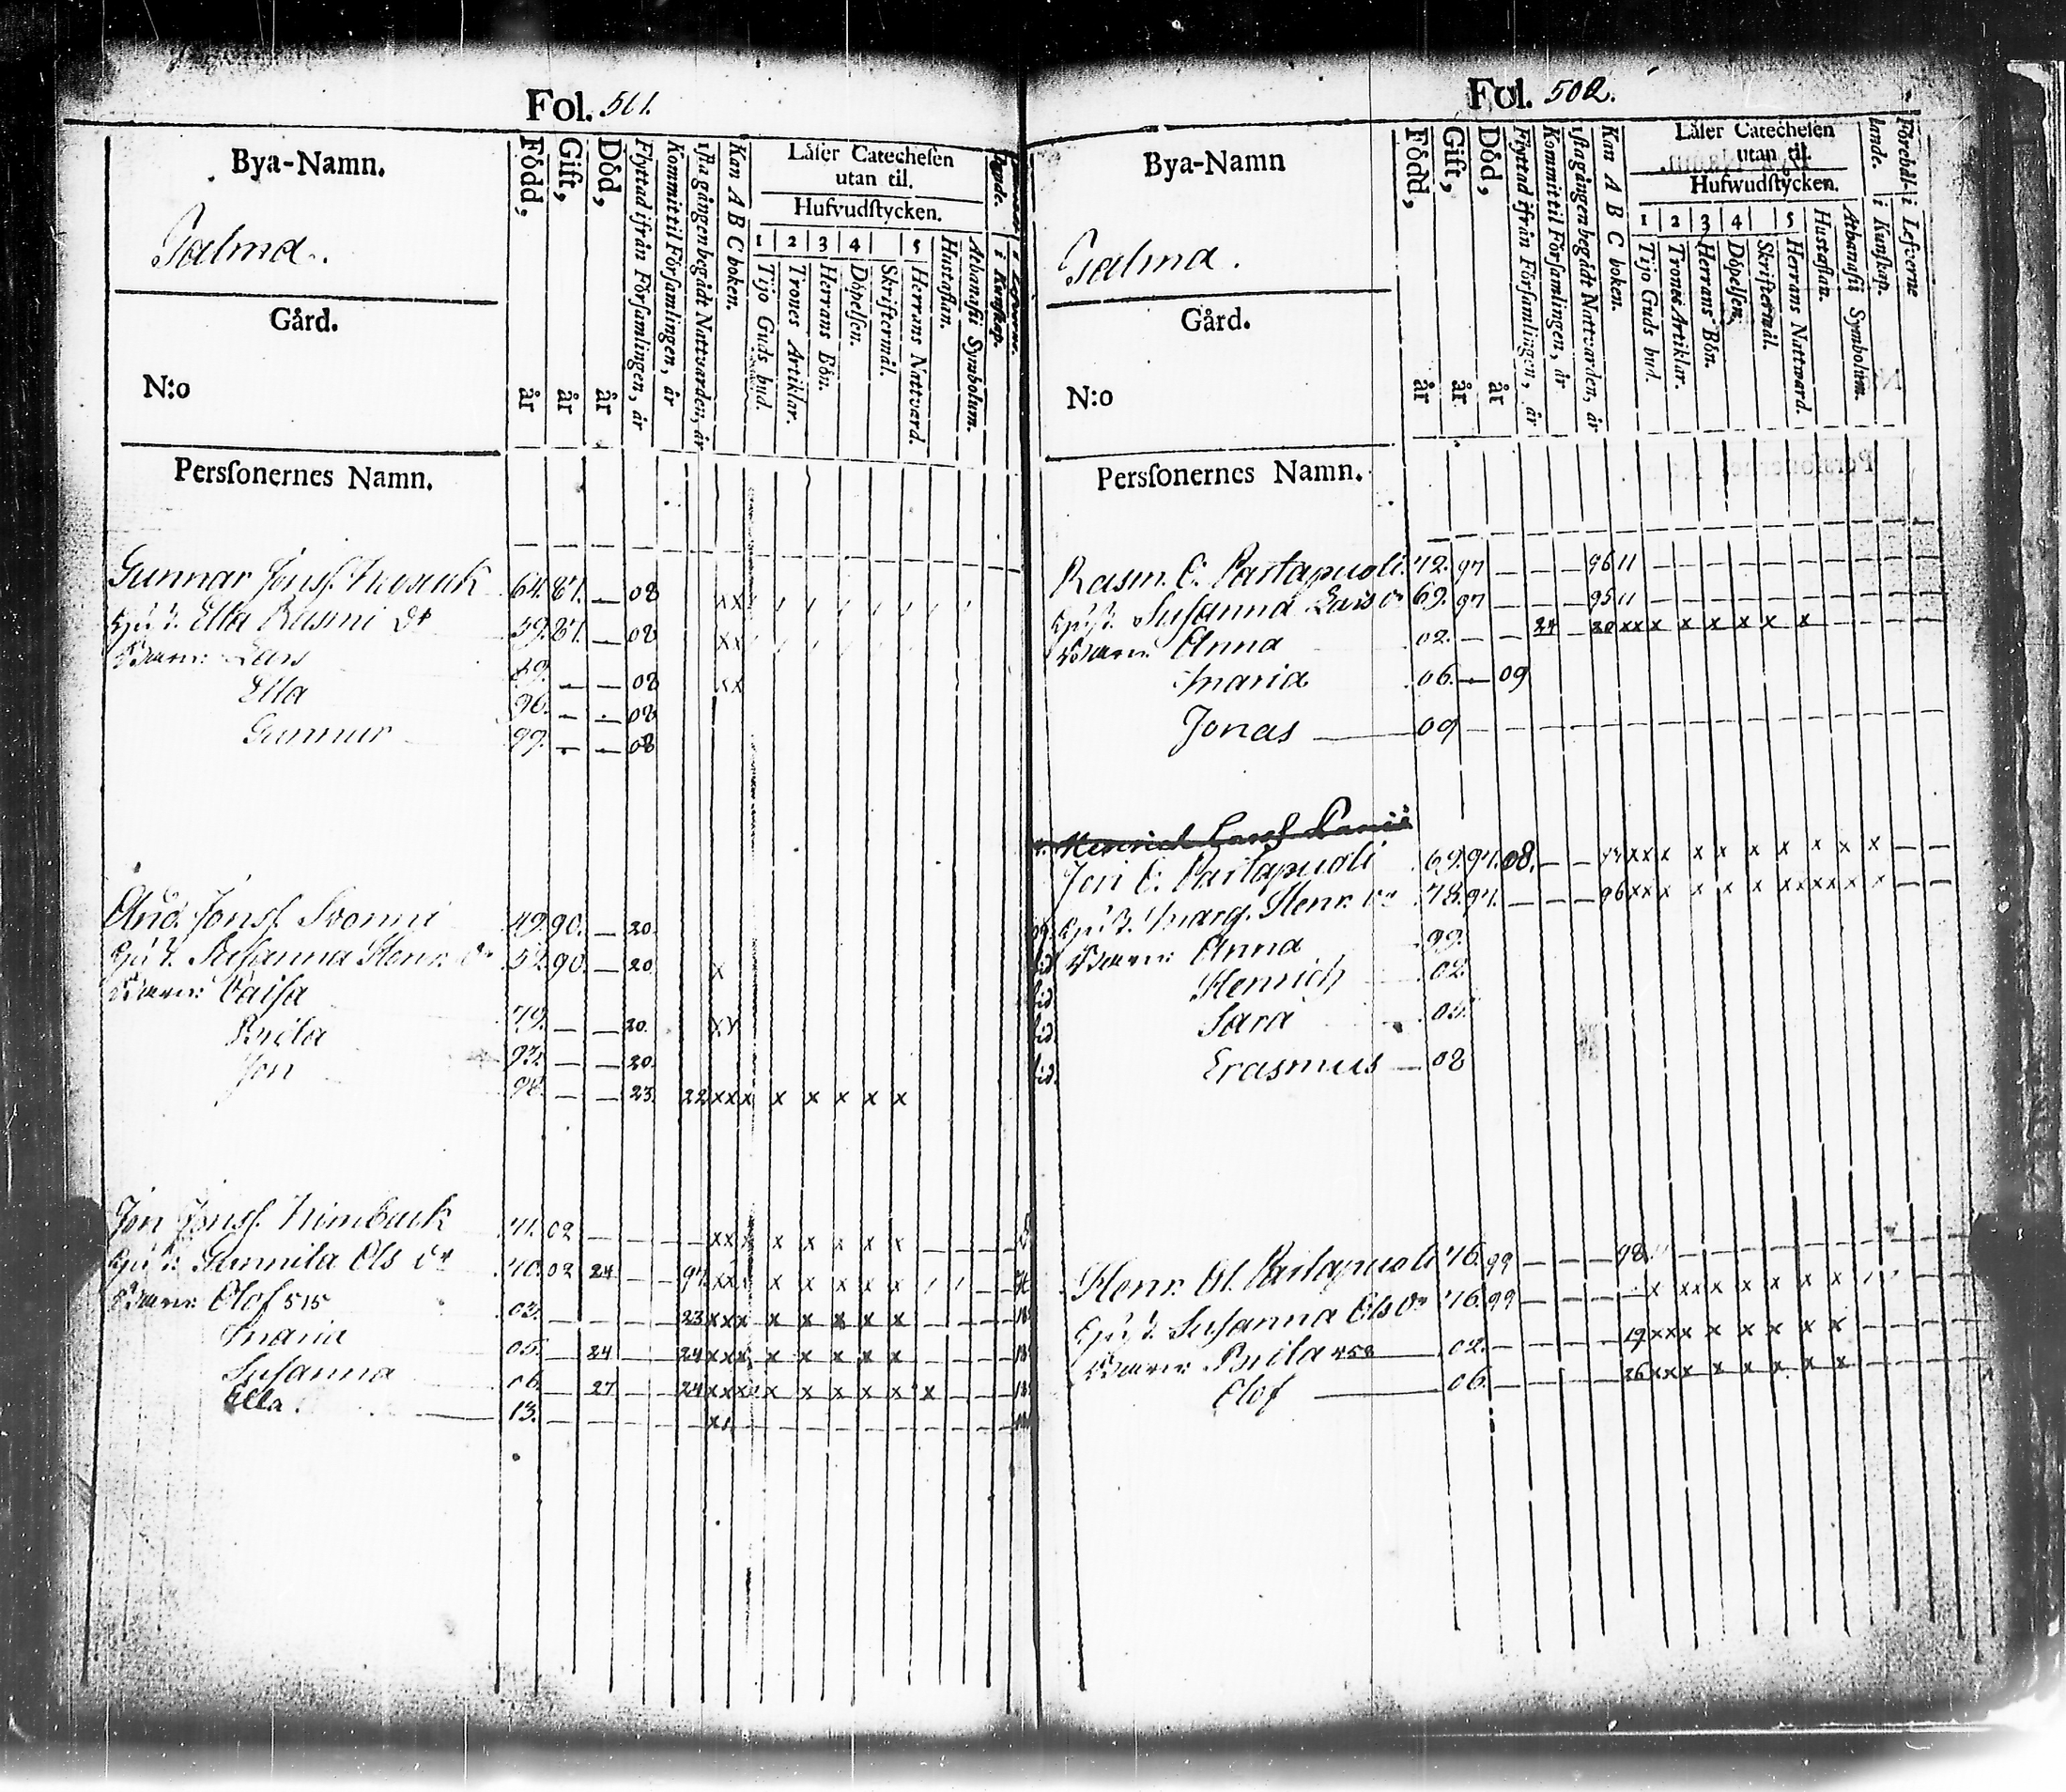 Fol. 501.
Bya-Namn.
Talma.
Gård.
N:o
Persſonernes Namn.
Född, år
Gift, år
Död, år
Flyttad ifrån Församlingen, år
Kommit til Församlingen, år
1ſta gången begådt Nattvarden, år
Kan A B C boken.
Läſer Catecheſen
utan til.
Hufvudſtycken.
1 2 3 4 5
Tijo Guds bud.
Trones Artiklar.
Herrans Bön.
Döpelſen.
Skriftermål.
Herrans Nattvard.
Huſtaflan.
Athanaſii Symbolum.
i Kunſkap.
Gunnar Jonsſ. 64. 87. — 08
Hust. Ella Rasmi dr 59. 87. — 08 xx
Barn: Lars 89. — — 08 xx
Ella 96. — — 08
Gunnur 99. — — 08
And. Jonsſ. Svonni 49. 90. — 20.
Hust. Susanna Henr. dr 52. 90. — 20 x
Barn: Caisa 79. — — 20. xx
Brita 93. — — 20.
Jon 98. — — 23. 22 xxx x x x x x
Jon Jonsſ. Nimbark 71. 02 — — — — xxx x x x x x
Hust. Gunnila Ols dr 70. 02 24 — — 97. xxx x x x x x
Barn: Olof 515 03. — — — — 23 xxx x x x x x
Maria 05. — 24 — — 24 xxx x x x x x
Susanna 06. — 27 — — 24 xxx x x x x x x
Ella. 13. — — — — — x
Fol. 502.
Bya-Namn
Talma.
Gård.
N:o
Persſonernes Namn.
Född, år
Gift, år
Död, år
Flyttad ifrån Församlingen, år
Kommit til Församlingen, år
1ſta gången begådt Nattvarden, år
Kan A B C boken.
Läſer Catecheſen
utan til.
Hufwudſtycken.
1 2 3 4 5
Tijo Guds bud.
Trones Artiklar.
Herrans Bön.
Döpelſen,
Skriftermål.
Herrans Nattward.
Huſtaflan.
Athanaſii Symbolum.
Förehållande.
i Kunſkap.
i Lefverne
Rasm. O. Partapuoli. 72. 97 — — — 96 11
Hust. Susanna Lars dr 69. 97 — — — 95 11
Barn: Anna 02. — — 24 — 20 xxx x x x x x
Maria 06. — 09
Jonas 09 —
Henrich Larsſ.
Jon O. Partapuoli 69. 97. 08. — — xxx x x x x x x
Hust. Marg. Henr. dr 78. 97. — — — 96 xxx x x x xxxx x
Barn: Anna 99.
Henrich 02.
Sara 05.
Erasmus — 08
Henr. Ol. Partapuoli 76. 99 — — — 98.
Hust. Susanna Ols dr 76. 99 — — — — x xxx x x x x
Barn: Brita 458 02. — — — — 19 xxx x x x x x
Olof — 06. — — — — 26 xxx x x x x x